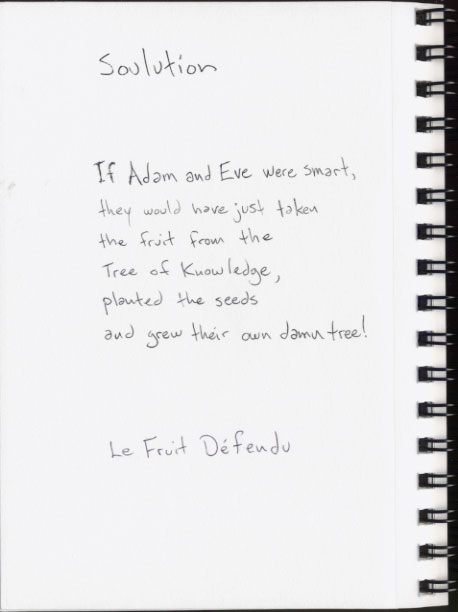 Soulution
If Adam and Eve were smart,
they would have just taken
the fruit from the
Tree of Knowledge,
planted the seeds
and grew their own damn tree!
Le Fruit Défendu